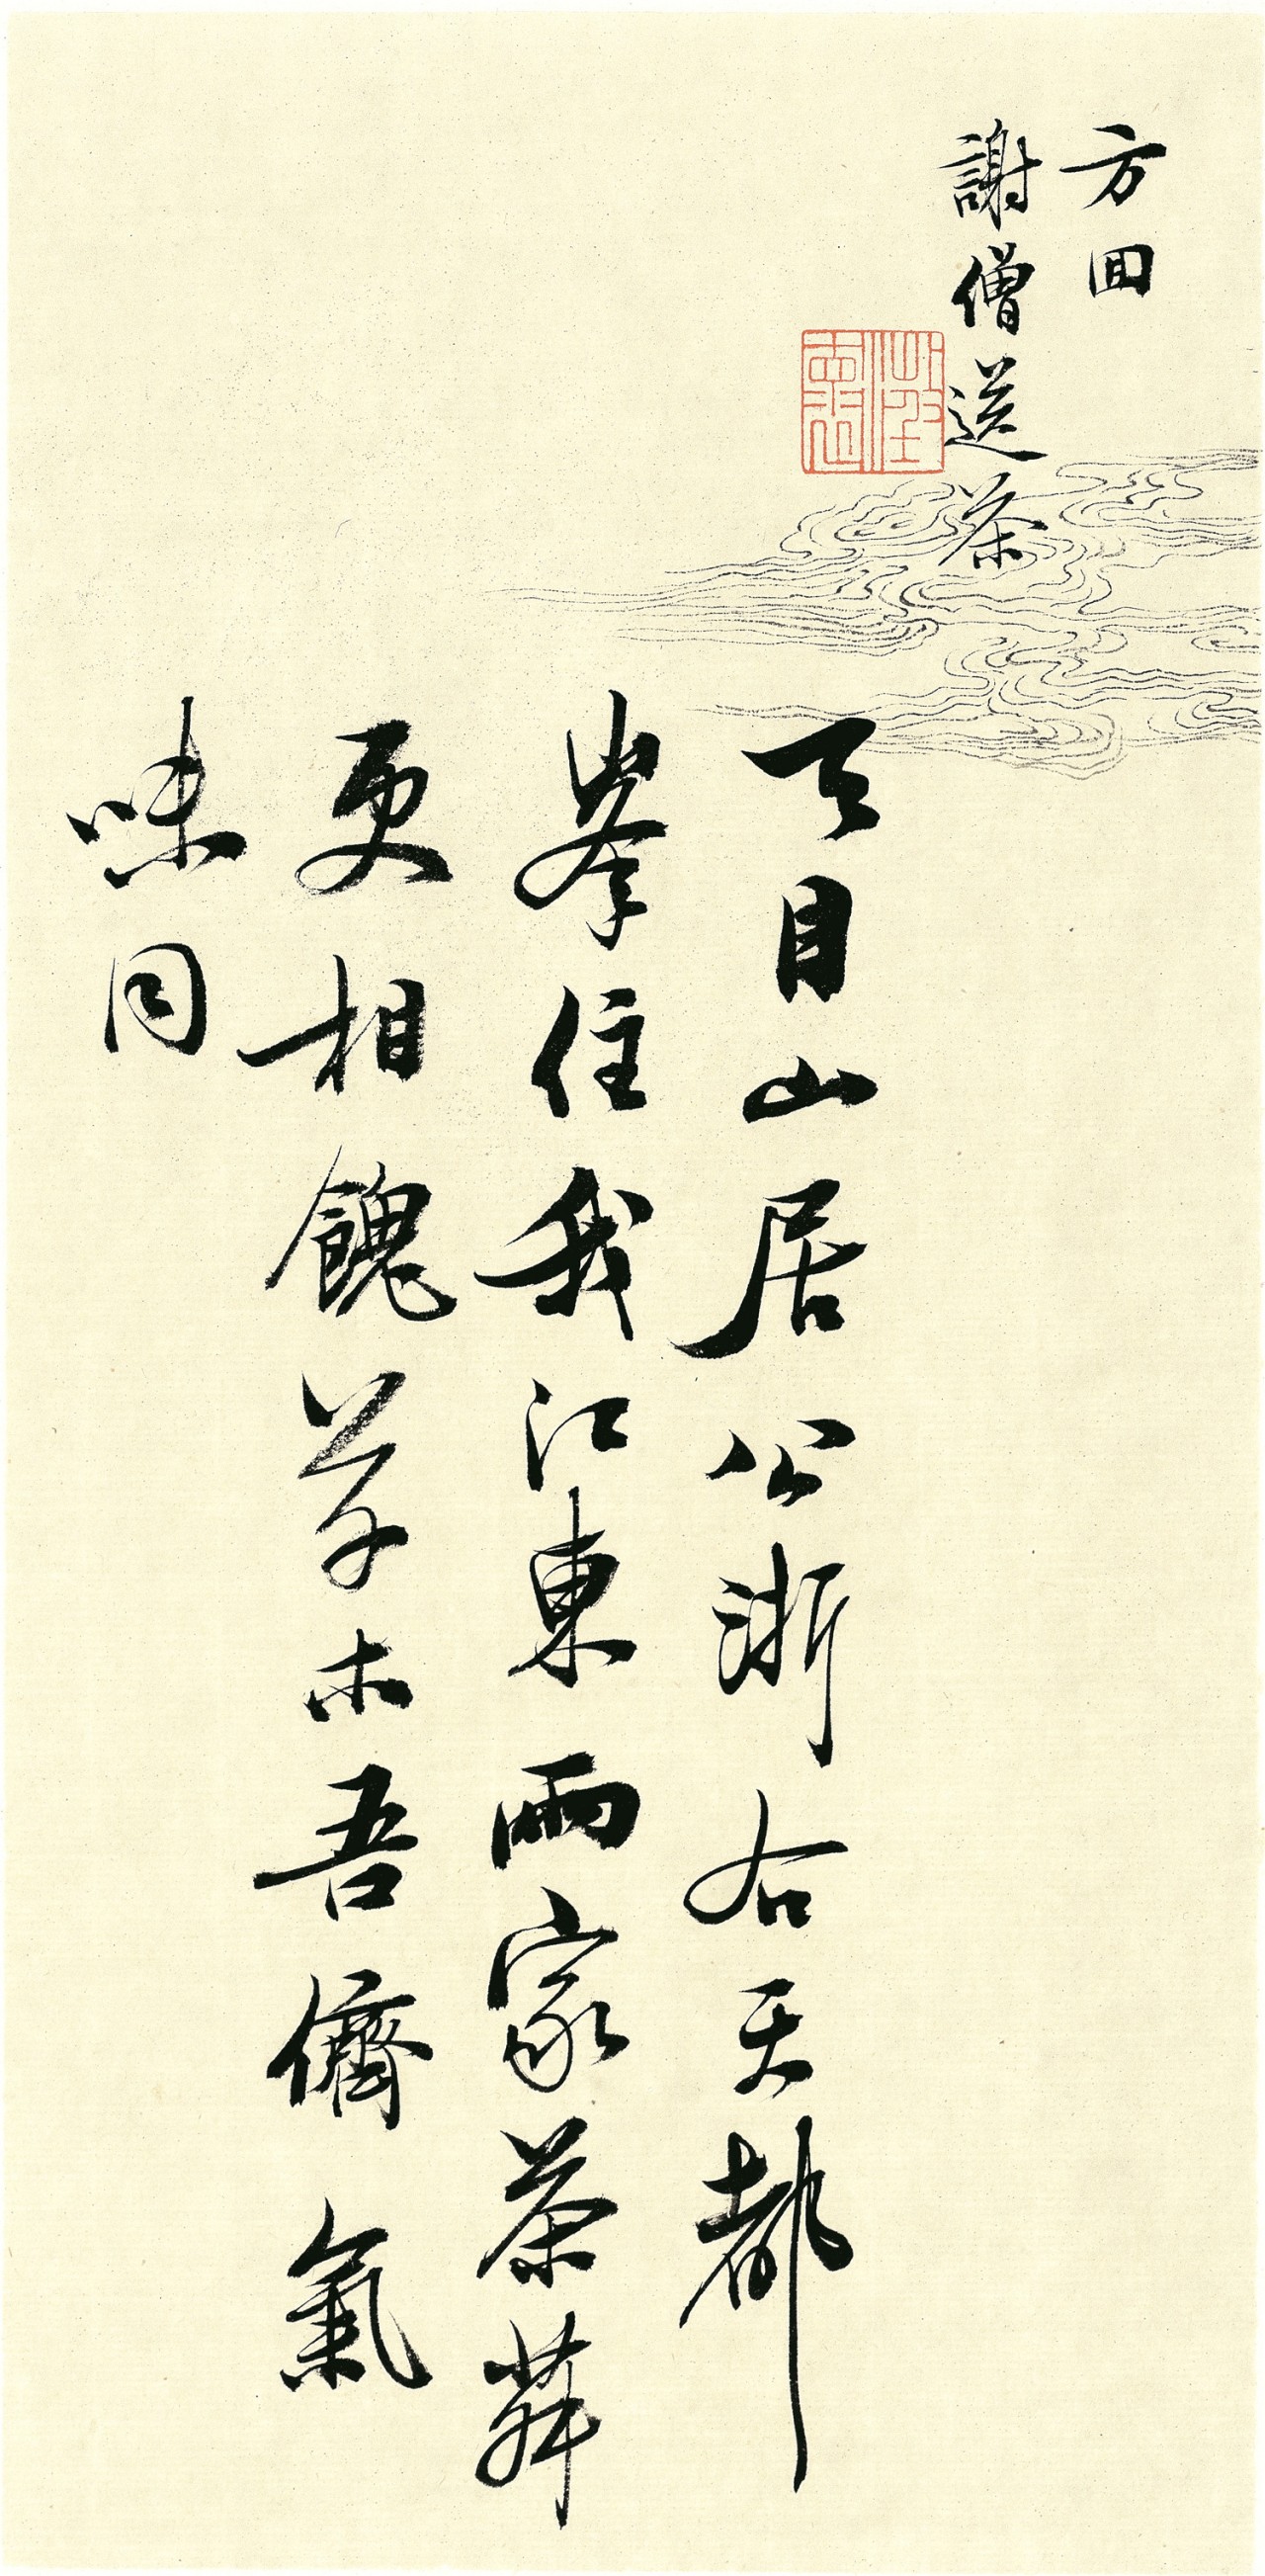 方回
謝僧送茶
天目山居公浙右天都
峯住我江東兩家茶薺
更相餽草木吾儕氣
味同